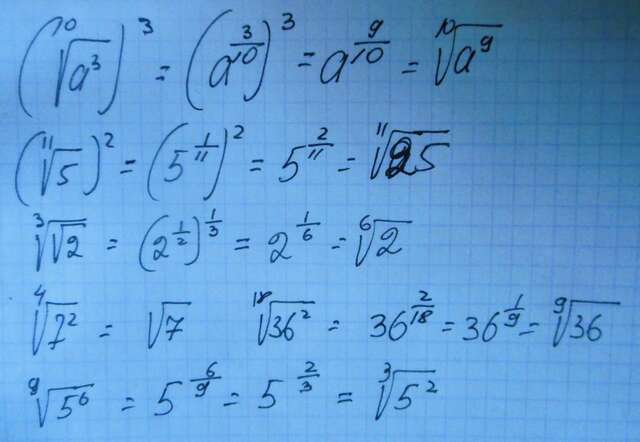 (¹⁰√a³)³ = (a^(3/10))³ = a^(9/10) = ¹⁰√a⁹
(¹¹√5)² = (5^(1/11))² = 5^(2/11) = ¹¹√25
³√√2 = (2^(1/2))^(1/3) = 2^(1/6) = ⁶√2
⁴√7² = √7 ¹⁸√36² = 36^(2/18) = 36^(1/9) = ⁹√36
⁹√5⁶ = 5^(6/9) = 5^(2/3) = ³√5²